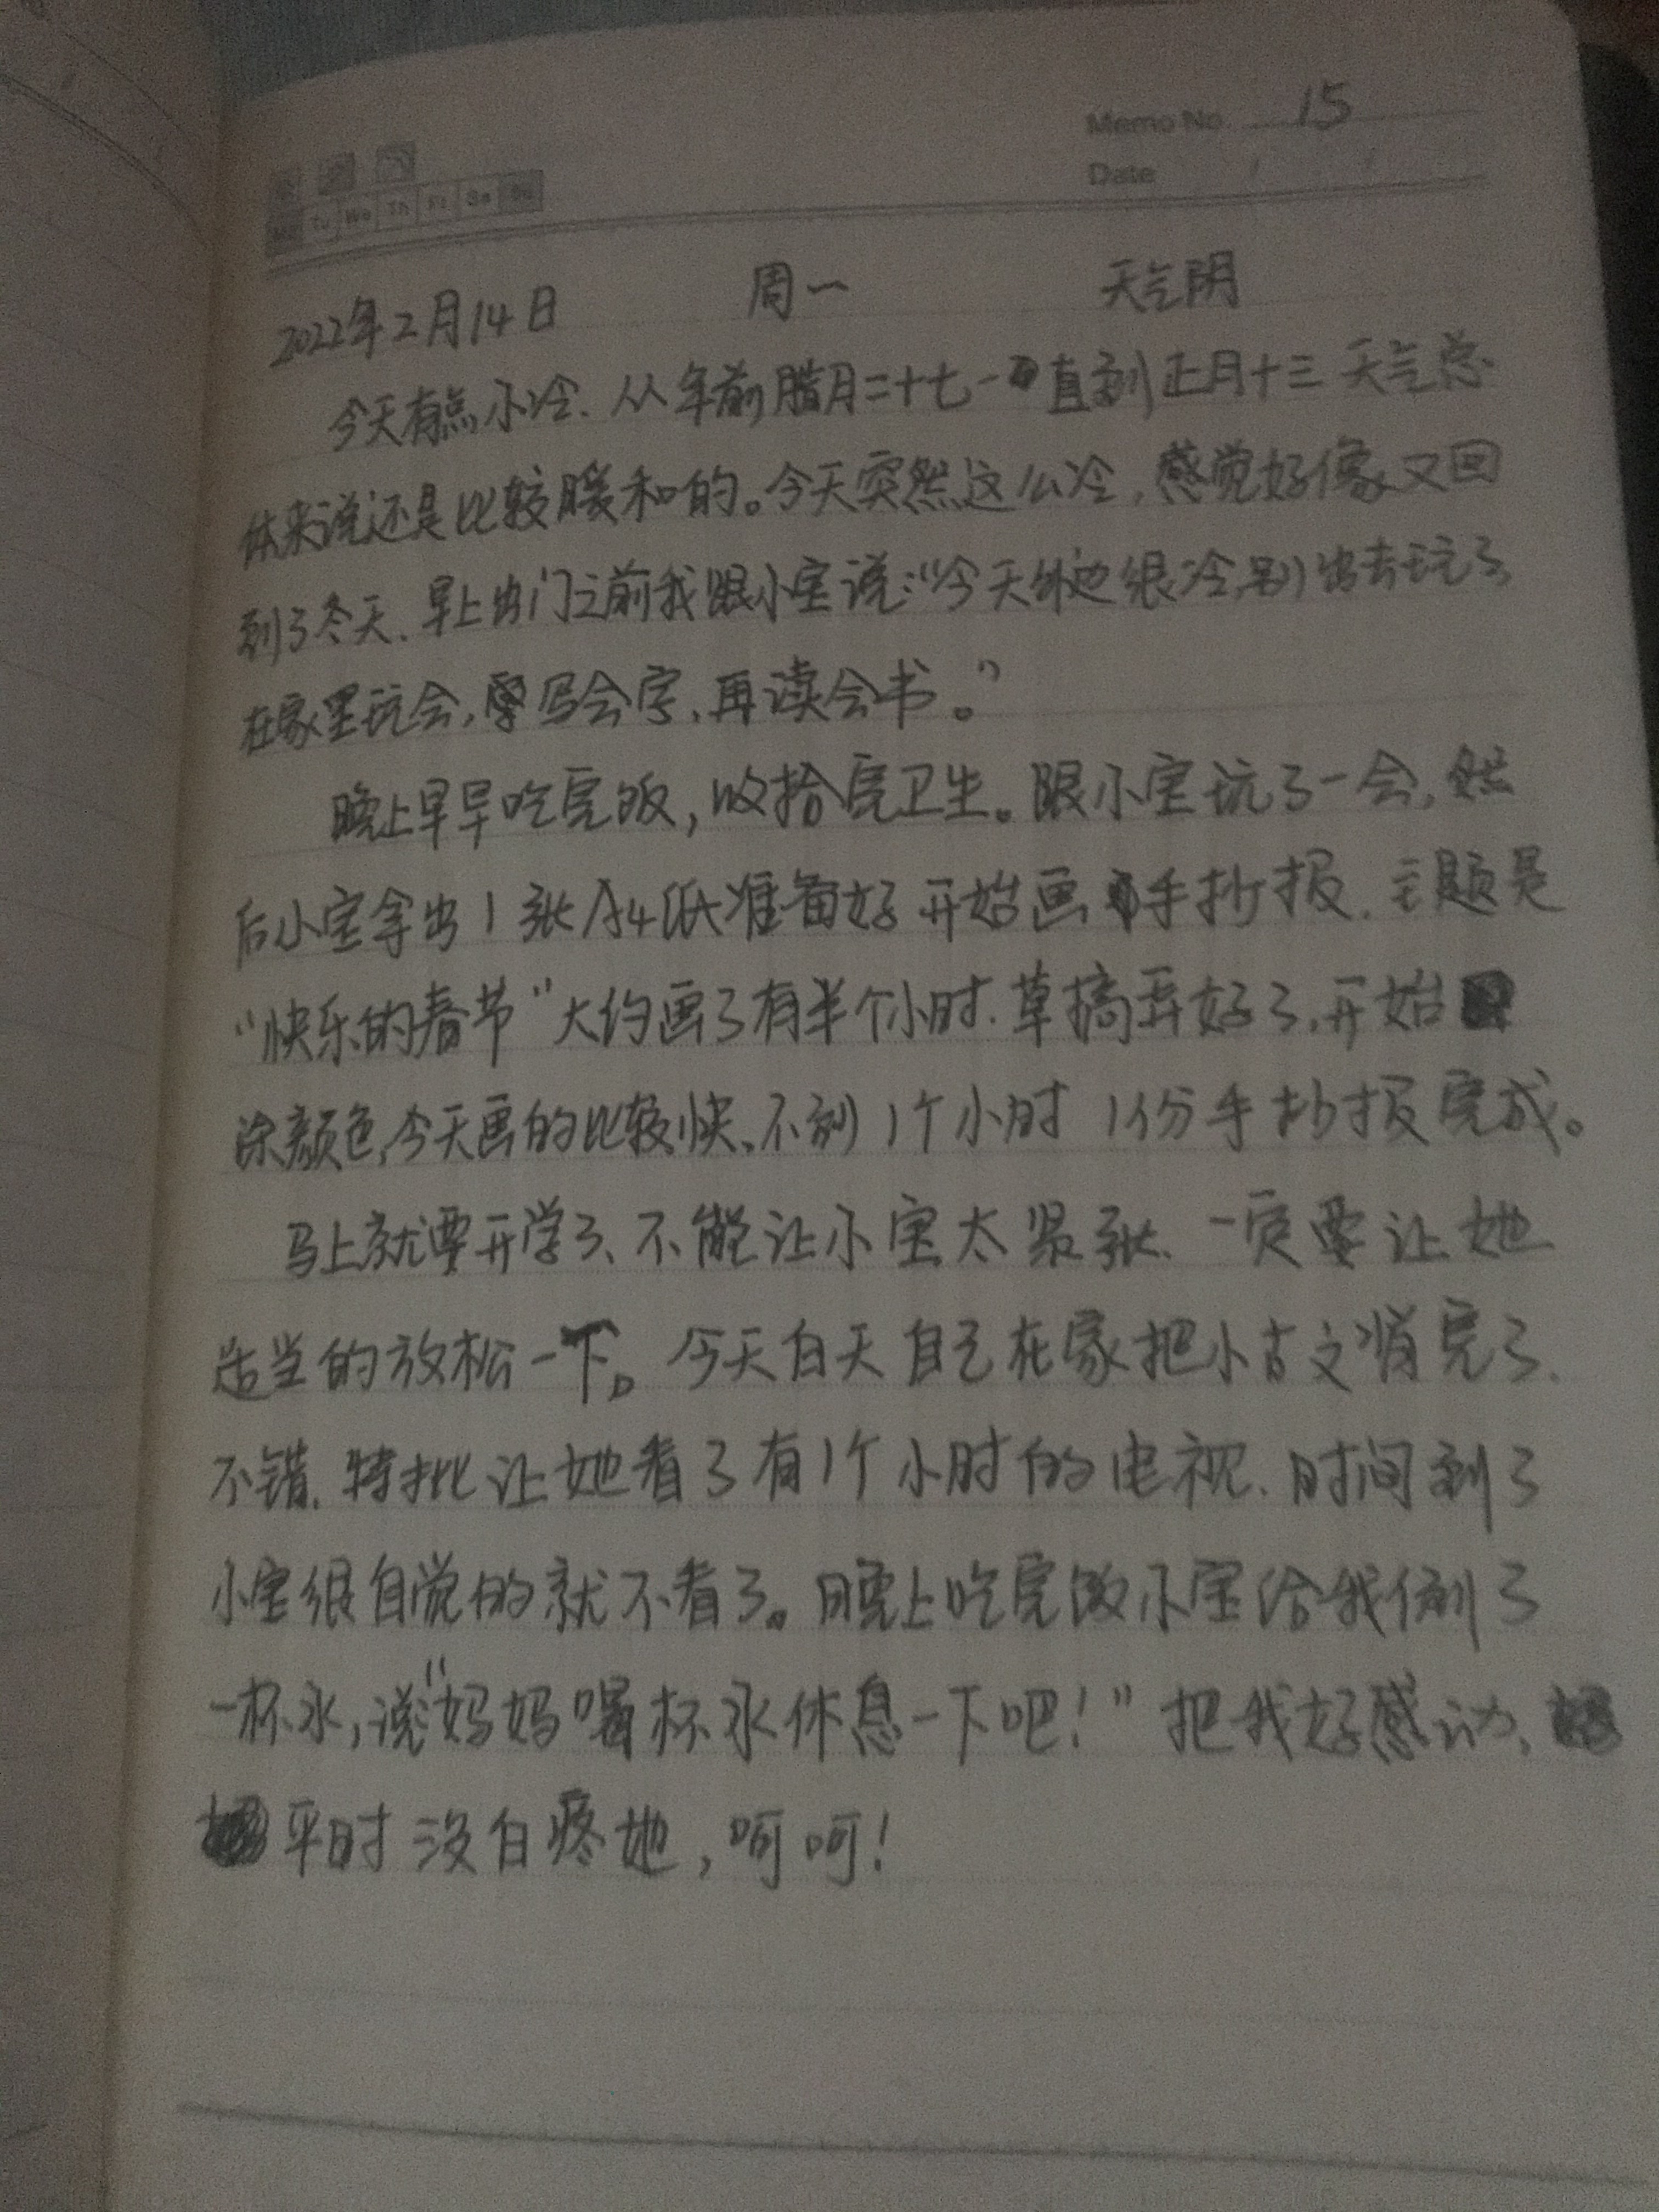 Memo No. 15
Date
Mo Tu We Th Fr Sa Su
2022年2月14日 周一 天气阴
今天有点小冷.从年前腊月二十七一直到正月十三天气总
体来说还是比较暖和的。今天突然这么冷,感觉好像又回
到了冬天.早上出门之前我跟小宝说:“今天外边很冷别出去玩了
在家里玩会,写会字,再读会书。”
晚上早早吃完饭,收拾完卫生。跟小宝玩了一会,然
后小宝拿出1张A4纸准备好开始画手抄报.主题是
“快乐的春节”大约画了有半个小时.草搞弄好了,开始
涂颜色,今天画的比较快,不到1个小时1份手抄报完成。
马上就要开学了、不能让小宝太紧张.一定要让她
适当的放松一下。今天白天自己在家把小古文背完了.
不错.特批让她看了有1个小时的电视.时间到了
小宝很自觉的就不看了。晚上吃完饭小宝给我倒了
一杯水,说:“妈妈喝杯水休息一下吧!”把我好感动,
平时没白疼她,呵呵!